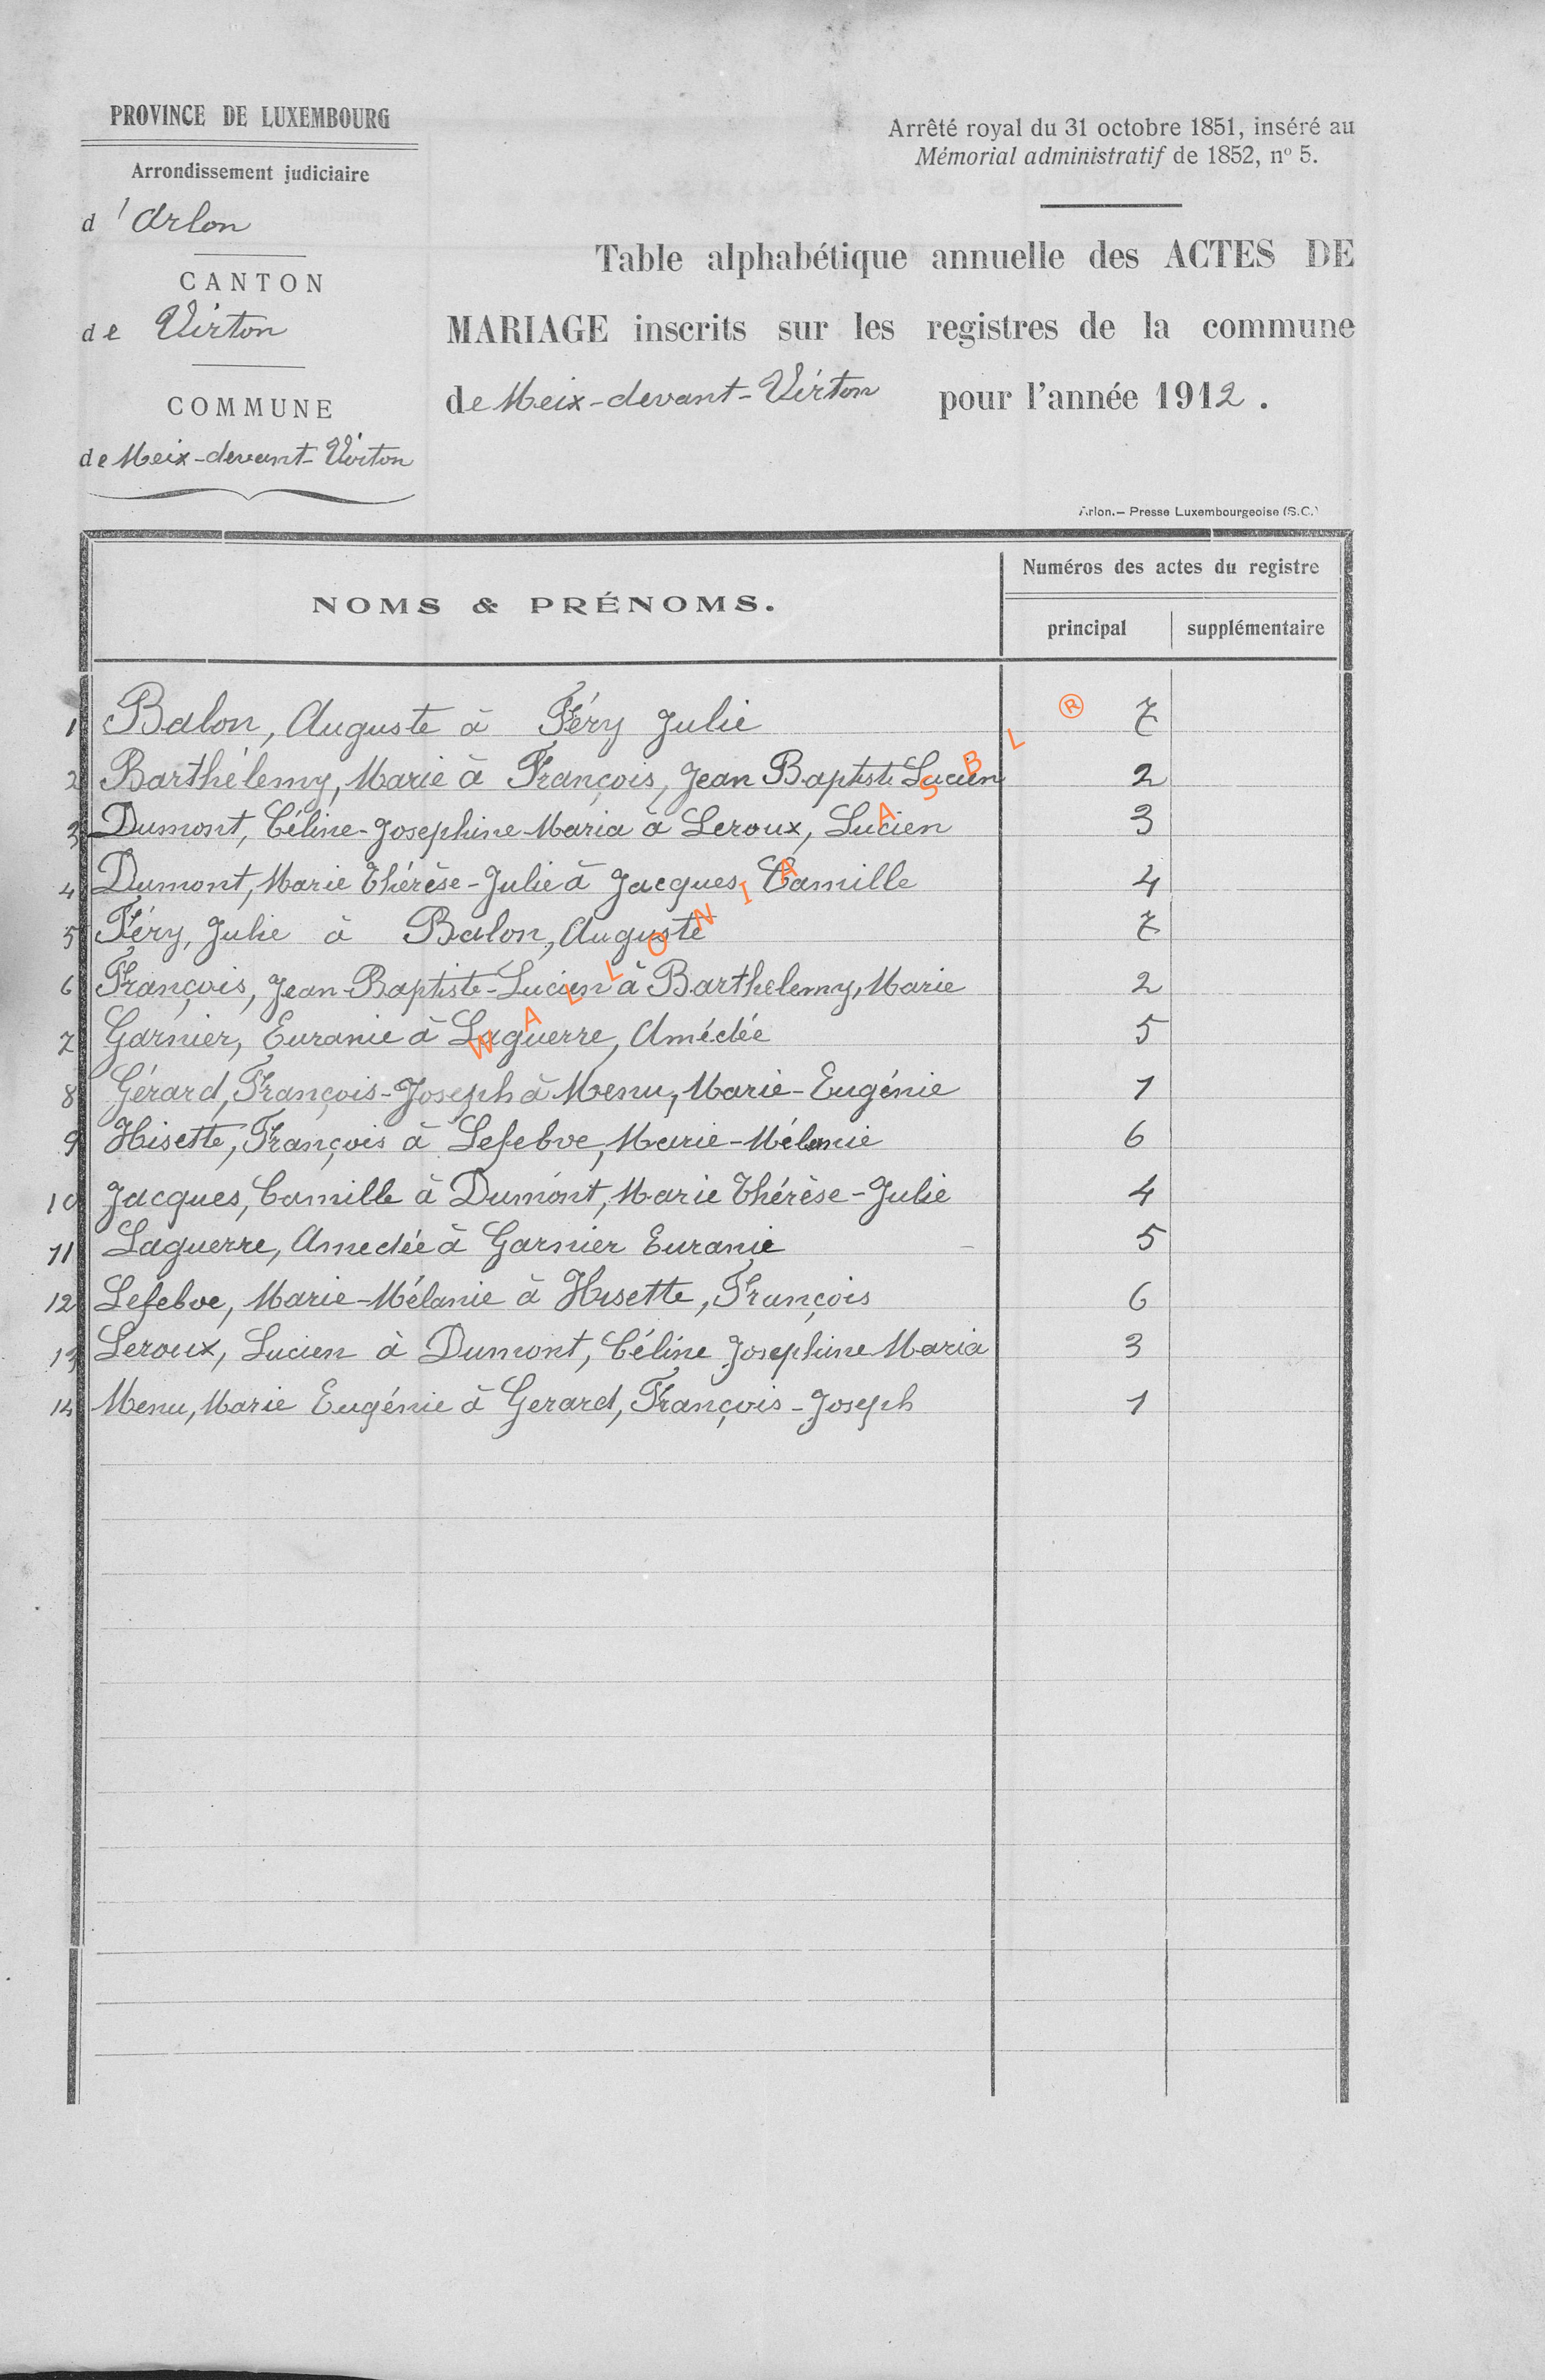 PROVINCE DE LUXEMBOURG
Arrondissement judiciaire
d'Arlon
CANTON
de Virton
COMMUNE
de Meix-devant-Virton
Arrêté royal du 31 octobre 1851, inséré au
Mémorial administratif de 1852, nº 5.
Table alphabétique annuelle des ACTES DE
MARIAGE inscrits sur les registres de la commune
de Meix-devant-Virton pour l'année 1912.
Arlon.— Presse Luxembourgeoise (S.C.)
NOMS & PRÉNOMS.
Numéros des actes du registre
principal supplémentaire
1 Balon, Auguste à Féry Julie 7
2 Barthélemy, Marie à François, Jean Baptiste Lucien 2
3 Dumont, Céline-Josephine-Maria à Leroux, Lucien 3
4 Dumont, Marie Thérèse-Julie à Jacques, Camille 4
5 Féry, Julie à Balon, Auguste 7
6 François, Jean-Baptiste-Lucien à Barthelemy, Marie 2
7 Garnier, Euranie à Laguerre, Amédée 5
8 Gérard, François-Joseph à Menu, Marie-Eugénie 1
9 Hisette, François à Lefebve, Marie-Mélanie 6
10 Jacques, Camille à Dumont, Marie Thérèse-Julie 4
11 Laguerre, Amedée à Garnier Euranie 5
12 Lefebve, Marie-Mélanie à Hisette, François 6
13 Leroux, Lucien à Dumont, Céline Josephine Maria 3
14 Menu, Marie Eugénie à Gerard, François-Joseph 1
WALLONIA ASBL ®